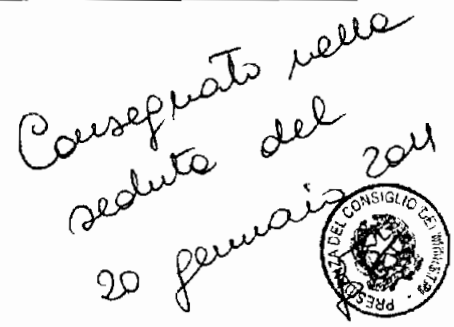 Consegnato nella
seduta del
20 gennaio 2011
PRESIDENZA DEL CONSIGLIO DEI MINISTRI